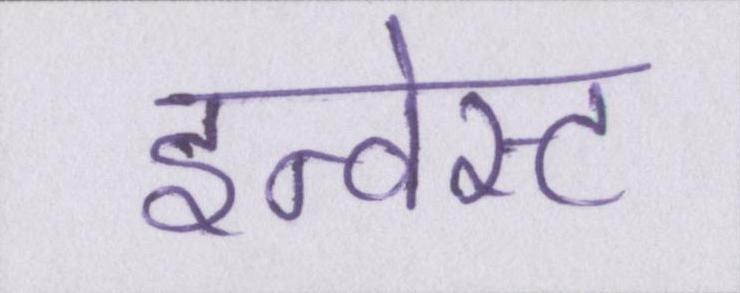 इन्वेस्ट